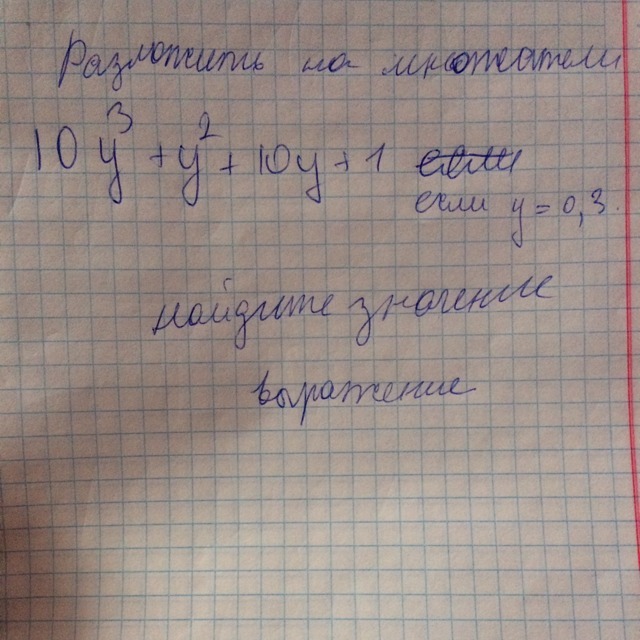 Разложить на множатели
10y³ + y² + 10y + 1
если y = 0,3.
найдите значение
выражение